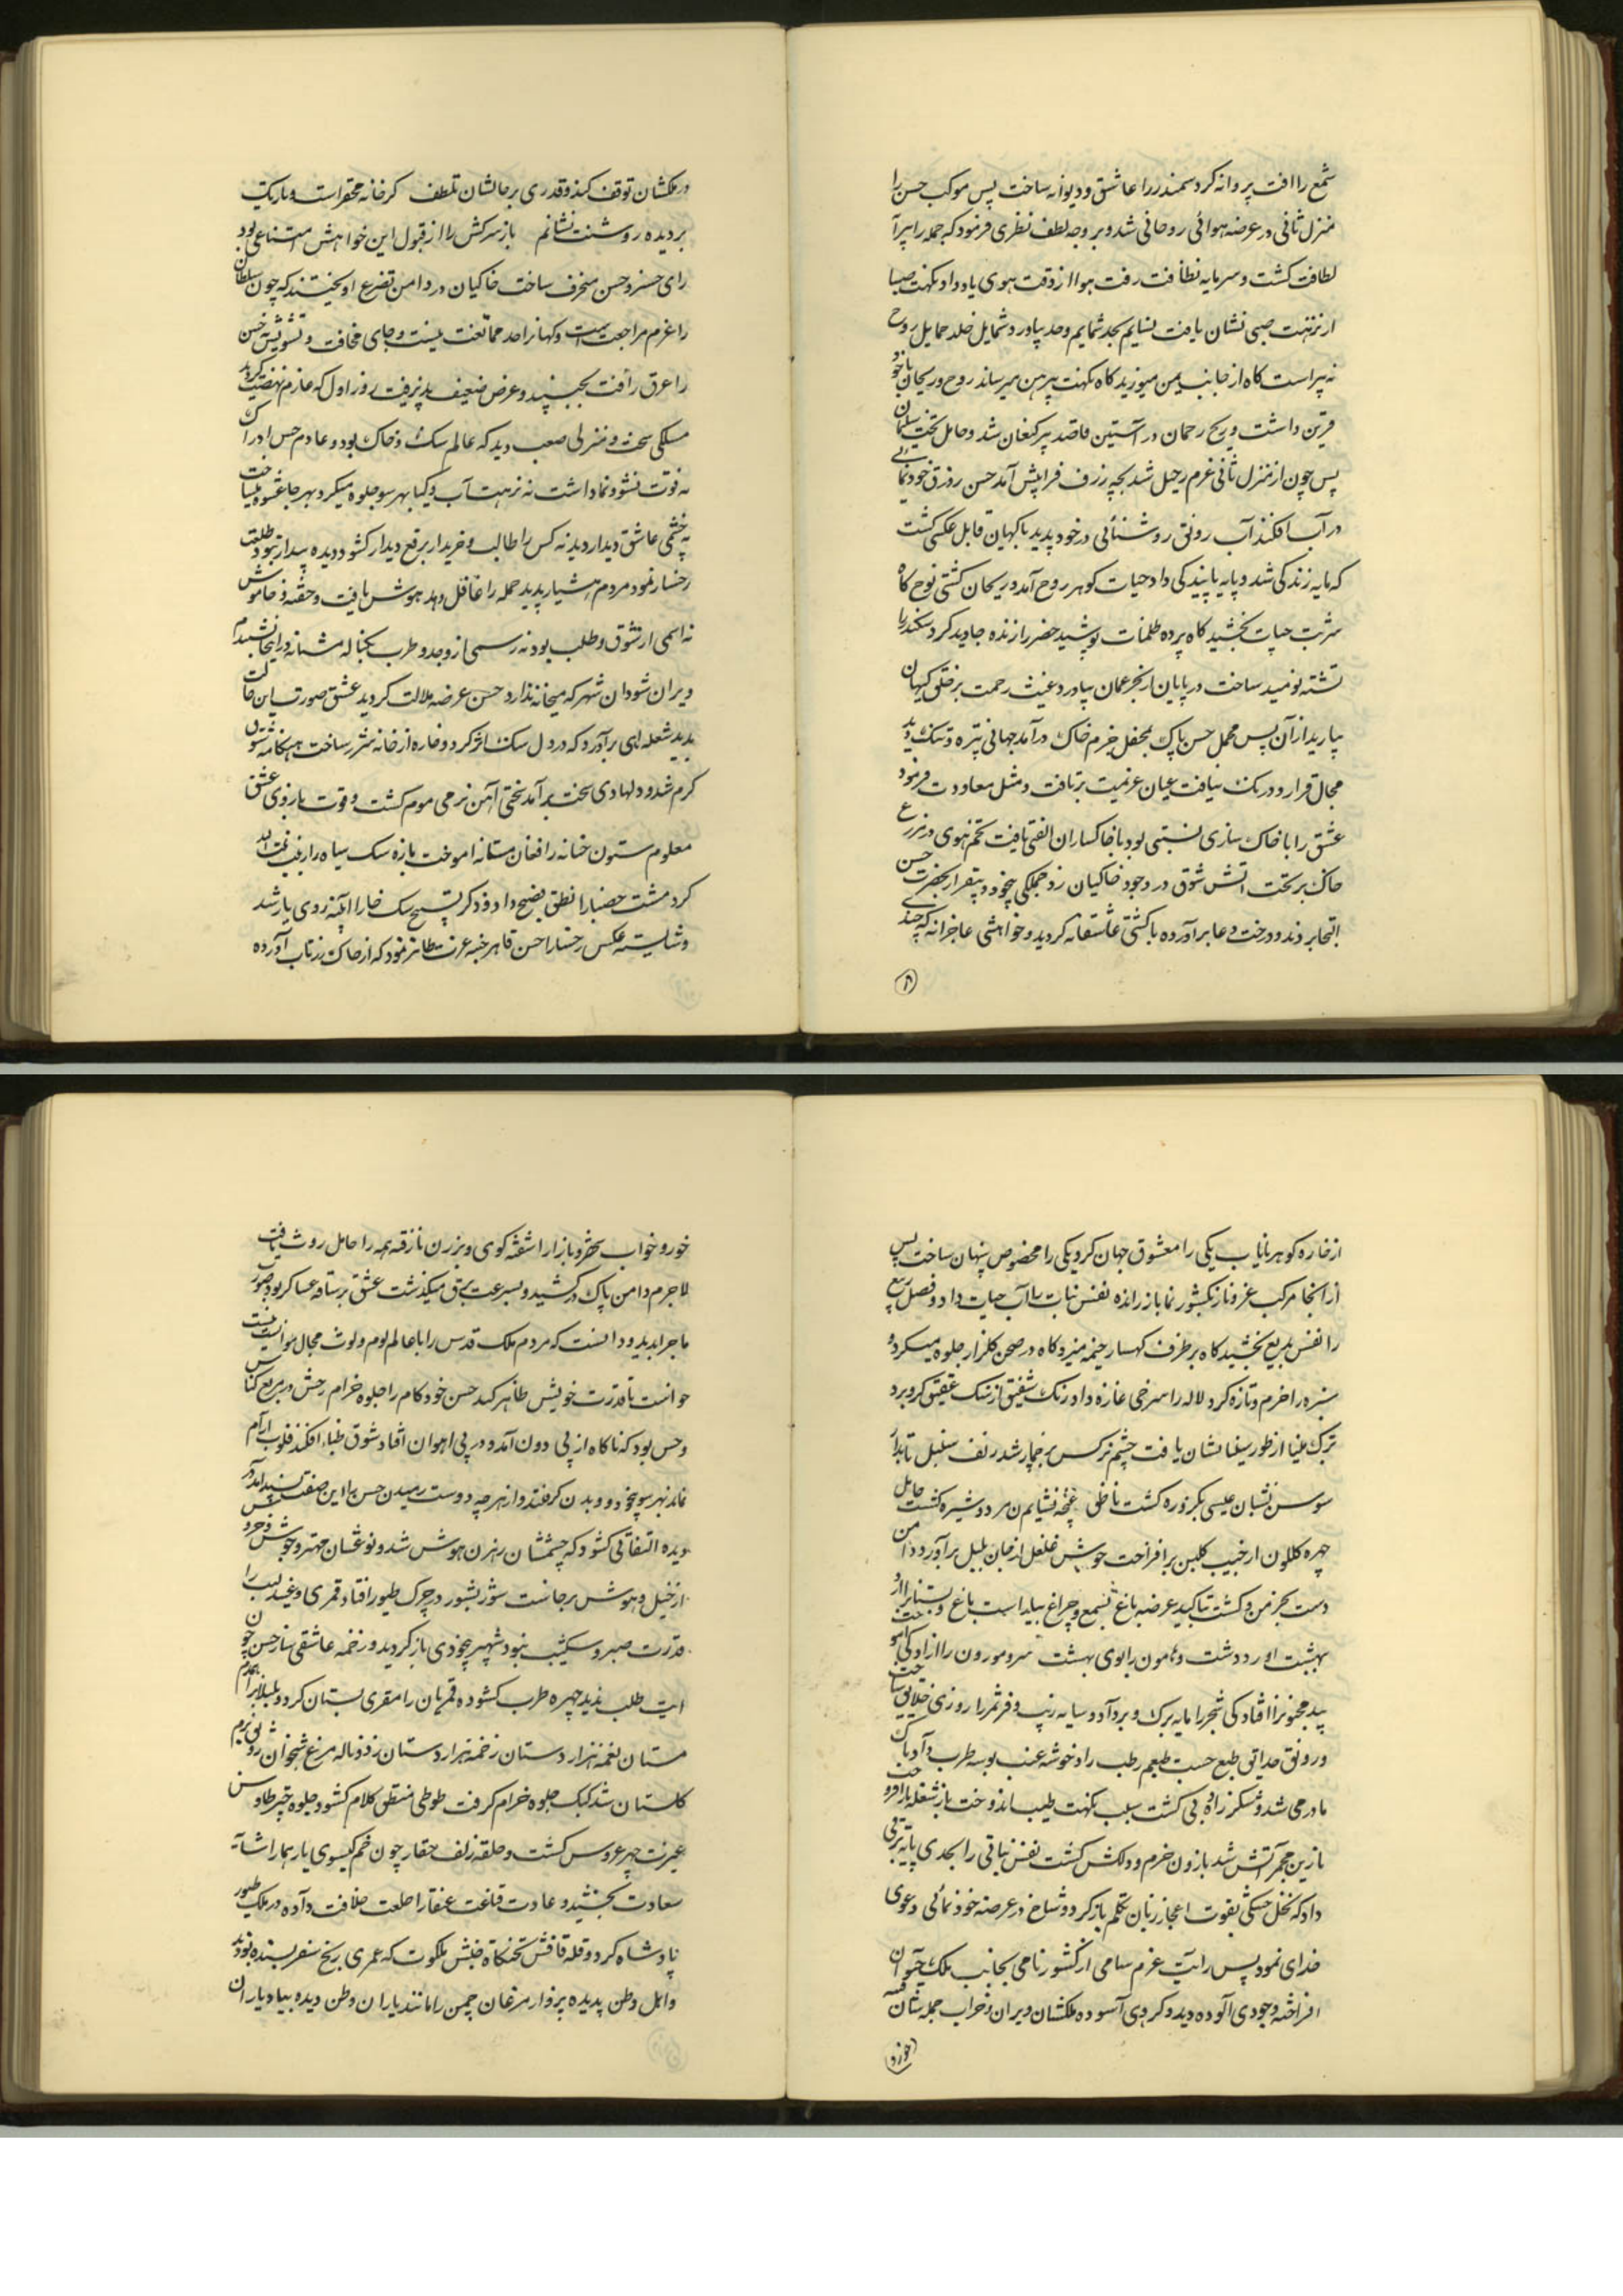 شمع را افت پروانه کرد سمندر را عاشق و دیوانه ساخت پس موکب حسن را
منزل ثانی در عرضه هوائی روحانی شد و بر وجه لطف نظری فرمود که جمله را پیرا
لطافت کشت و سرمایه نظافت رفت هوا از وقت بوی یاد داد و نکهت صبا
از نزهت صبی نشان یافت نسایم بیاورد و شمایل خلد حمایل روح
نه پیراست کاه از جانب یمن میوزید کاه نکهت پیرهن میرساند روح و ریحان باخود
قرین داشت و ریح رحمان در آستین قاصد پیر کنعان شد و حامل تخت سلیمان
پس چون از منزل ثانی عزم رحیل شد لجه ژرف فرا پیش آمد حسن زورق خودنمایی
در آب افکند آب رونق روشنائی در خود پدید با کیهان قابل عکس کشت
که مایه زندکی شد و پایه پایندکی داد حیات کوهر روح آمد و ریحان کشتی نوح کاه
شربت حیات بخشید کاه پرده ظلمات پوشید خضر را زنده جاوید کرد سکندر را
تشنه نومید ساخت در پایان از بحر عمان بیاورد و غیث رحمت بر خلق کیهان
ببارید از آن پس محمل حسن پاک بمحفل خرم خاک درآمد جهانی تیره و تنک دید
مجال قرار و درنک نیافت عنان عزیمت برتافت و مثل معاودت فرمود
عشق را با خاک سازی نسبتی بود با خاکساران الفتی یافت تخم هوی در مزرع
خاک بریخت اتش شوق در وجود خاکیان زد جملکی بیخود و بیقرار بحضرت حسن
التجا بردند و درخت دعا برآورده باکشتی عاشقانه کردید و خواهشی عاجزانه که چندی
در ملکشان توقف کند و قدری بر حالشان تلطف کر خانه محقر است و تاریک
بر دیده روشنت نشانم باز سرکش را از قبول این خواهش امتناعی بود
رای خسرو حسن منحرف ساخت خاکیان در دامن تضرع آویختند که چون سلطان
را عزم مراجعت است و کهانرا حد ممانعت نیست و جای مخافت و تشویش حسن
را عرق رأفت بجنبید و عرض ضعیف پذیرفت روز اول که عازم نهضت کردید
مسلکی سخت و منزلی صعب دید که عالم سنک و خاک بود و عادم حس ادراک
نه قوت نشو و نما داشت نه نزهت آب و کیا بهر سو جلوه میکرد بهر جا
نه چشمی عاشق دیدار دید نه کس را طالب و خریدار برقع دیدار کشود دیده بیدار نبود طلعت
رخسار نمود مردم هشیار پدید جمله را غافل و بیهوش یافت و خفته و خاموش
نه اسمی از شوق و طلب بود نه رسمی از وجد و طرب یک ناله مستانه در اینجا نشنیدم
ویران شود آن شهر که میخانه ندارد حسن عرضه ملالت کردید عشق صورت این حالت
بدید شعله ای برآورد که در دل سنک اثر کرد و خاره از خانه شرر ساخت هنکامه شوق
کرم شد و دلهادی سخت برآمد سختی آهن نرمی موم کشت و قوت بازوی عشق
معلوم ستون حنانه را فغان مستانه اموخت باره سنک سیاه را زیب
کرد مشت حصبا را نطق فصیح داد و ذکر تسبیح سنک خارا آئینه روی یار شد
و شایسته عکس رخسار حسن قاهر خبه عزت ظاهر نمود که از خاک زر ناب آورده
از خاره کوهر نایاب یکی را معشوق جهان کرد یکی را مخصوص پنهان ساخت پس
از انجا مرکب عز و ناز بکشور نما باز رانده نفس نبات را آب حیات داد و فصل ربیع
را نفس بدیع بخشید کاه بر طرف کهسار خیمه میزد و کاه در صحن کلزار جلوه میکرد و
سبزه را خرم و تازه کرد لاله را سرخی غازه داد رنک شفیق از سنک عقیق کرو برد
ترک مینا از طور سینا نشان یافت چشم نرکس پر خمار شد زلف سنبل تابدار
سوسن نشان عیسی بکر زوره کشت ناطق غنچه نشان مریم دوشیزه کشت حامل
چهره کلکون از جیب کلبن برافراخت جوش غلغل از جان بلبل برآورد دامن
دست بخرمن و کشت تا کید عرضه باغ شمع و چراغ بیاراست باغ و بستانرا از
بهشت آورد دشت و هامون را بوی بهشت سرو موزون را ازادکی آموخت
بید مجنونرا افتادکی شجر را مایه برک و بر داد و سایه زیب و فر ثمر را روزی خلایق ساخت
و رونق حدایق طبع حسب طبعم رطب راد خوشه عنب بوسه طرب داد تاک
مادر می شد و شکر زاد نی کشت سیب نکهت طیب اندوخت نار شعله بار افروخت
نارین مجمر آتش شد نارون خرم و دلکش کشت نفس نباتی را بجدی پایه برتری
داد که نخل خشکی بقوت اعجاز زبان تکلم باز کرد و شاخ در عرضه خودنمائی دعوی
خدای نمود پس رایت عزم سامی از کشور نامی بجانب ملک حیوان
افراخته وجودی آلوده دید و کروهی آسوده ملکشان ویران و خراب جمله شان همه
خور و خواب بحر و بازار اشفته کوی و برزن ناز قه همه را حامل روث یافت
لاجرم دامن پاک درکشید و بسرعت برق میکذشت عشق بر ساقه عساکر بود صورت
ماجرا بدید و دانست که مردم ملک قدس را با عالم لوم و لوث مجال موانست نیست
خواست تا قدرت خویش ظاهر کند حسن خودکام را جلوه خرام رخش در مربع کناس
وحس بود که ناکاه از پی دون آمد و در پی اهوان افتاد شوق ظباء افکند قلوب ارام
نماند بهر سو بیخود دویدن کرفتند و از هرچه دوست رمیدن حسن را این صفت پسند آمد در
دیده التفاتی کشود که چشمشان رهزن هوش شد و نوعشان مهتر وحوش خروش
از خیل وهوش برخاست شور نشور در چرک طیور افتاد قمری و عندلیب را
قدرت صبر و شکیب نبود شهپر بیخودی باز کردید و زخمه عاشقی ساز حسن چون
ایت طلب بدید چهره طرب کشوده قمریان را مقری بستان کرد و بلبلانرا همدم
مستان نغمه هزار دستان زخمه هزار دستان زد و ناله مرغ شبخوان رونق بزم
کلستان شد کبک جلوه خرام کرفت طوطی منطق کلام کشود جلوه چتر طاوس
غیرت چهر عروس کشت و حلقه زلف حقار چون خم کیسوی یار هما را شانه
سعادت بخشید و عادت قناعت عنقا را خلعت خلافت داده در ملک طیور
پادشاه کرد و قله قافش تختکاه جنبش ملکوت که عمری رنج سفر بسنده بودند
و اهل وطن پدیده پرواز مرغان چمن را مانند یاران وطن دیده بیاد یاران